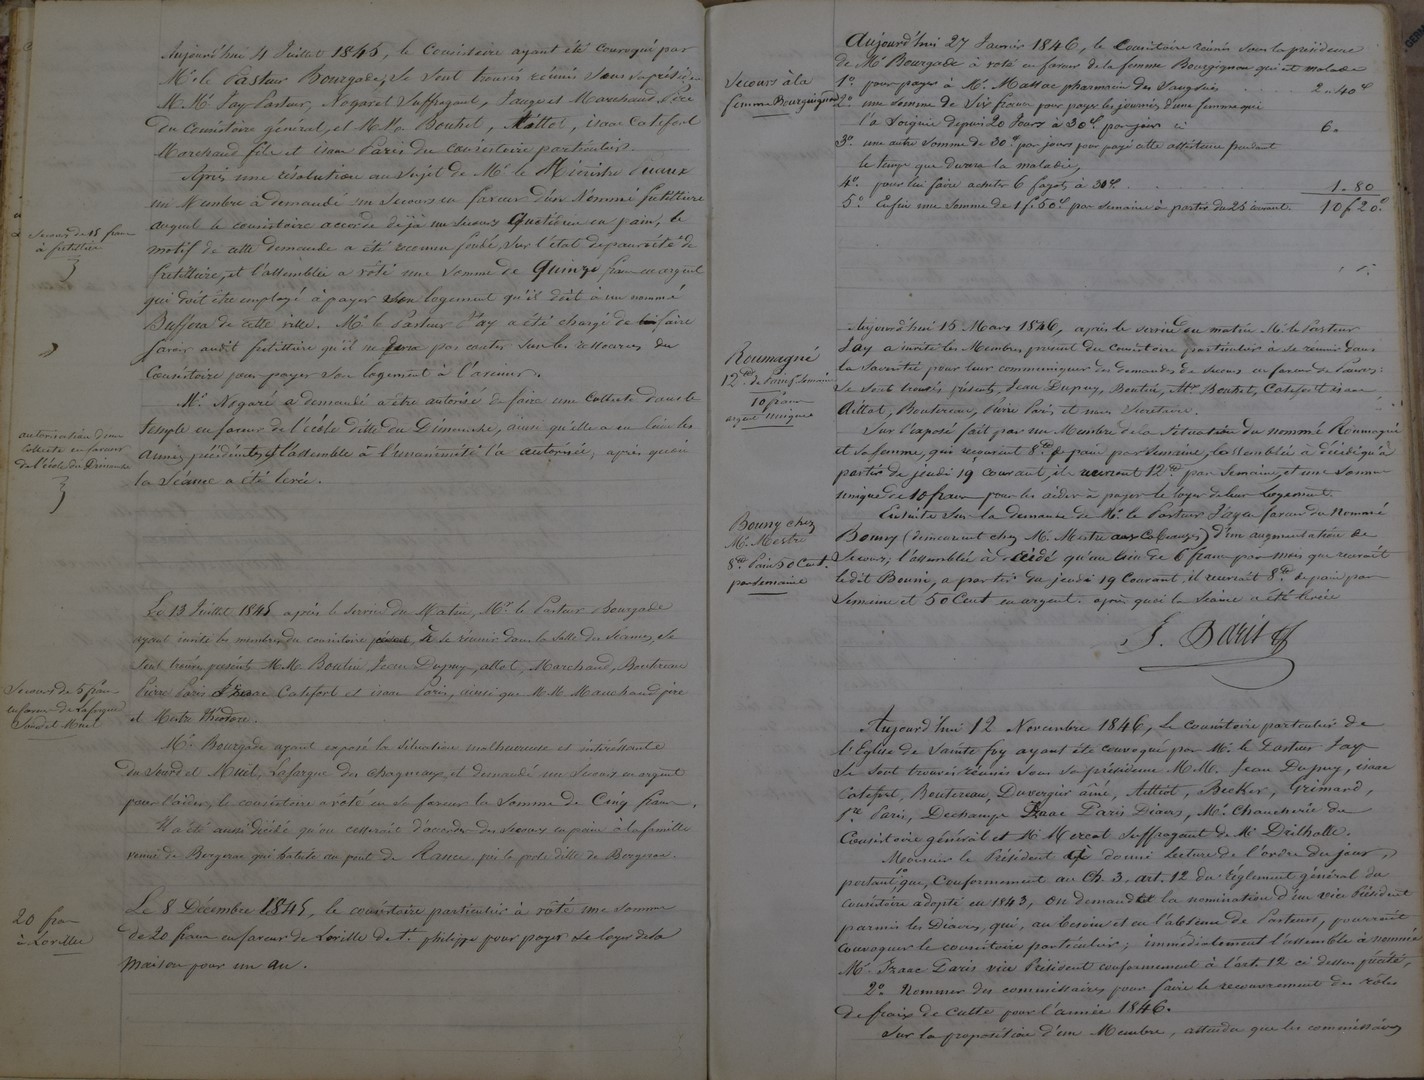 Aujourd'hui 4 Juillet 1845, le Consistoire ayant été convoqué par
Mr. le Pasteur Bourgade, se sont trouvés réunis sous sa présidence
M.M. Jay Pasteur, Nogaret Suffragant, Marchand Père
du Consistoire général, et M.M. Bouhet, Aittot, isaac Catefort
Marchand fils et isaac Paris du consistoire particulier.
Après une résolution au sujet de Mr. le Ministre
un Membre a demandé un Secours en faveur d'un Nommé fretillère
auquel le consistoire accorde déjà un secours quotidien en pain, le
motif de cette demande a été reconnu fondé sur l'état de pauvreté de
fretillère, et l'assemblée a voté une somme de Quinze francs en argent
qui doit être employé à payer son logement qu'il doit à un nommé
de cette ville. Mr. le Pasteur Jay a été chargé de faire
savoir audit fretillère qu'il ne pas compter sur les ressources du
Consistoire pour payer son logement à l'avenir.
Mr. Nogaret a demandé a être autorisé de faire une Collecte dans le
Temple en faveur de l'école dite du Dimanche, ainsi qu'elle a eu lieu les
années précédentes, et l'assemblée à l'unanimité l'a autorisée, après quoi
la séance a été levée.
Secours de 15 francs
à fretillère
autorisation d'une
Collecte en faveur
de l'école du Dimanche
Le 13 Juillet 1845 après le service du Matin, Mr. le Pasteur Bourgade
ayant invité les membres du consistoire à se réunir dans la Salle des Séances, se
sont trouvés présents M.M. Boutin, Jean Dupuy, allot, Marchand, Boutereau
Pierre Paris Catefort et isaac Paris, ainsi que M.M. Marchand père
et Mestre théodore.
Secours de 5 francs
en faveur de Lafargue
Sourd et Muet
Mr. Bourgade ayant exposé la situation malheureuse et intéressante
du Sourd et Muet, Lafargue des chagneaux, et demandé un Secours en argent
pour l'aider, le consistoire a voté en sa faveur la Somme de Cinq francs.
Il a été aussi décidé qu'on cesserait d'accorder des secours en pain à la famille
venue de Bergerac qui habite au pont de près la porte dite de Bergerac.
20 francs
à Loville
Le 8 Décembre 1845, le consistoire particulier à voté une somme
de 20 francs en faveur de Loville de St. philippe pour payer le loyer de la
maison pour un an.
Secours à la
femme Bourguignon
Aujourd'hui 27 Janvier 1846, le Consistoire réunis sous la présidence
de Mr. Bourgade à voté en faveur de la femme Bourguignon qui est malade
1o. pour payer à Mr. Massac pharmacien des Sangsues 2 " 40c
2o. une somme de Six francs pour payer les journées d'une femme qui
l'a soignée depuis 20 Jours à 30c. par jour ci 6.
3o. une autre somme de 30c. par jour pour payer cette assistance pendant
le temps que durera la maladie,
4o. pour lui faire acheter 6 fagots à 30c. 1.80
5o. Enfin une somme de 1f.50c par semaine à partir du 25 courant. 10f20c
Roumagné
12 lbs de pain p. semaine
10 francs
argent unique
Aujourd'hui 15 Mars 1846, après le service du matin Mr. le Pasteur
Jay a invité les Membres présent du consistoire particulier à se réunir dans
la Sacristie pour leur communiquer des demandes de secours en faveur de Pauvres:
Se sont trouvés présents, Jean Dupuy, Boutin, Bouhet, Catefort isaac
Aittot, Boutereau, Pierre Paris, et nous Secrétaire.
Sur l'exposé fait par un Membre de la Situation du nommé Roumagné
et sa femme, qui recevront 8 lbs de pain par Semaine, l'assemblée à décidé qu'à
partir de jeudi 19 courant, ils recevront 12 lbs par Semaine, et une somme
unique de 10 francs pour les aider à payer le loyer de leur logement.
Bouny chez
Mr. Mestre
8 lbs Pain 50 Cent.
par Semaine
Ensuite Sur la demande de Mr. le Pasteur Jay en faveur du Nommé
Bouny (demeurant chez Mr. Mestre aux ) d'une augmentation de
Secours, l'assemblée à décidé qu'au lieu de 6 francs par mois que recevait
ledit Bouni, a partir du jeudi 19 Courant, il recevrait 8 lbs de pain par
Semaine et 50 Cent en argent. après quoi la Séance a été levée
I. Paris
Aujourd'hui 12 Novembre 1846, Le Consistoire particulier de
l'Eglise de Sainte foy ayant été convoqué par Mr. le Pasteur Jay
Se sont trouvés réunis sous sa présidence M.M. Jean Dupuy, isaac
Catefort, Boutereau, Duvergier aîné, Aittot, Becker, Grimard,
Pre. Paris, Dechamps Isaac Paris Diacres, Mr. Chaucherie du
Consistoire général et Mr. Mercat Suffragant de Mr. Drilholle.
Monsieur le Président a donné lecture de l'ordre du jour,
portant 1o que, Conformément au Ch. 3. art. 12 du règlement général du
consistoire adopté en 1843, on demandât la nomination d'un vice Président
parmi les Diacres, qui, au besoin et en l'absence de Pasteurs, pourrait
convoquer le consistoire particulier; immédiatement l'assemblée à nommé
Mr. Isaac Paris vice Président conformément à l'art. 12 ci dessus précité,
2o. Nommer des commissaires pour faire le recouvrement des rôles
de frais de culte pour l'année 1846.
Sur la proposition d'un Membre, attendu que les commissaires